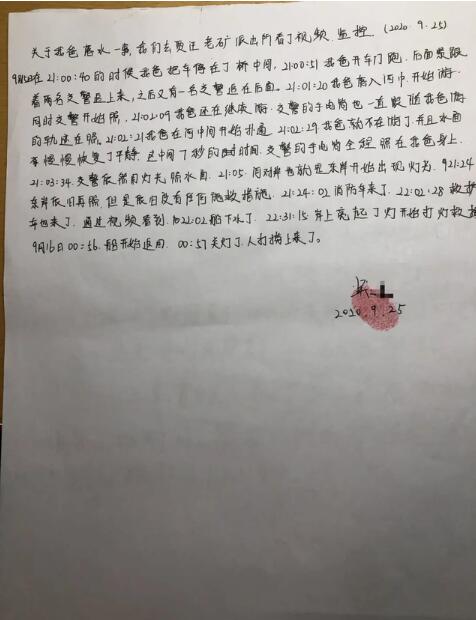 关于我爸落水一事,我们去贾汪老矿派出所看了视频监控.(2020.9.25)
9月15日在21:00:40的时候我爸把车停在了桥中间,21:00:51我爸开车门跑.后面紧跟
着两名交警追上来,之后又有一名交警追在后面.21:01:20我爸落入河中.开始游.
同时交警开始照,21:02:09我爸还在继续游.交警的手电筒也一直跟随我爸游
的轨迹在照.21:02:21我爸在河中间开始扑通.21:02:29我爸就不在游了.而且水面
慢慢恢复了平静.这中间7秒的时间.交警的手电筒全程照在我爸身上.
21:03:34.交警依然用灯光照水面.21:05.河对岸也就是东岸开始出现灯光.21:24
东岸依旧再照.但是依旧没有任何施救措施.21:24:02消防车来了.22:02:28救护
车也来了.通过视频看到.22:02船下水了.22:31:15岸上亮起了灯开始打灯救援
9月16日00:56.船开始返回.00:57关灯了.人打捞上来了.
2020.9.25